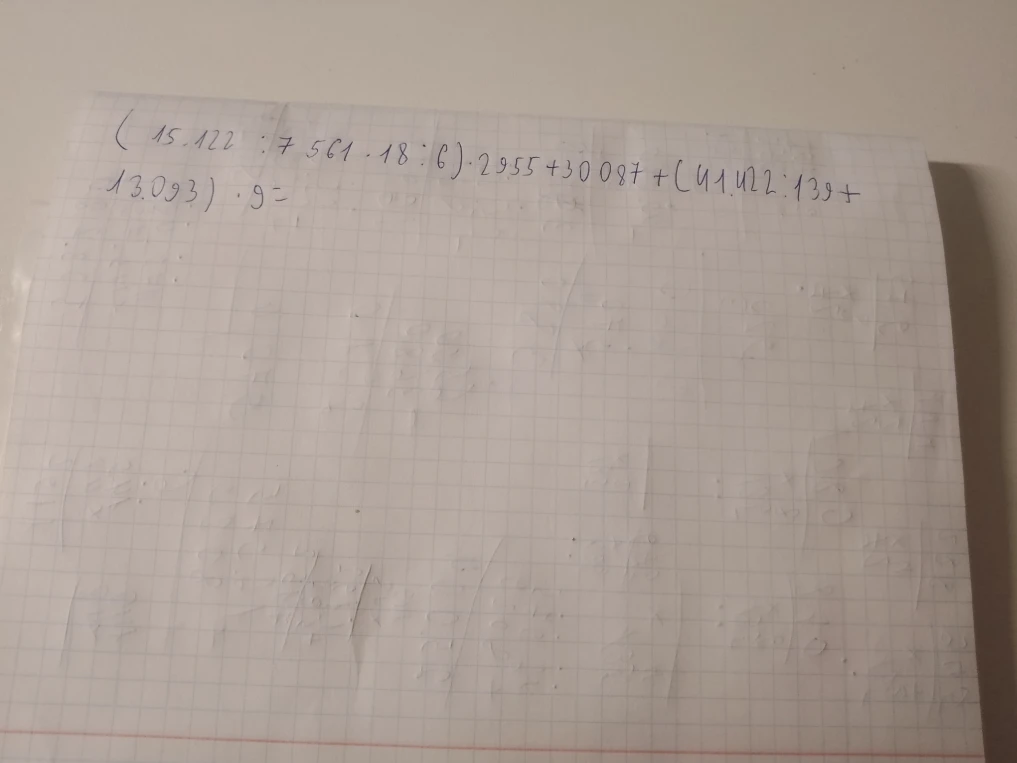 ( 15.122 : 7 561 . 18 : 6) . 2955 + 30 087 + (41.422 : 139 +
13.093) . 9 =